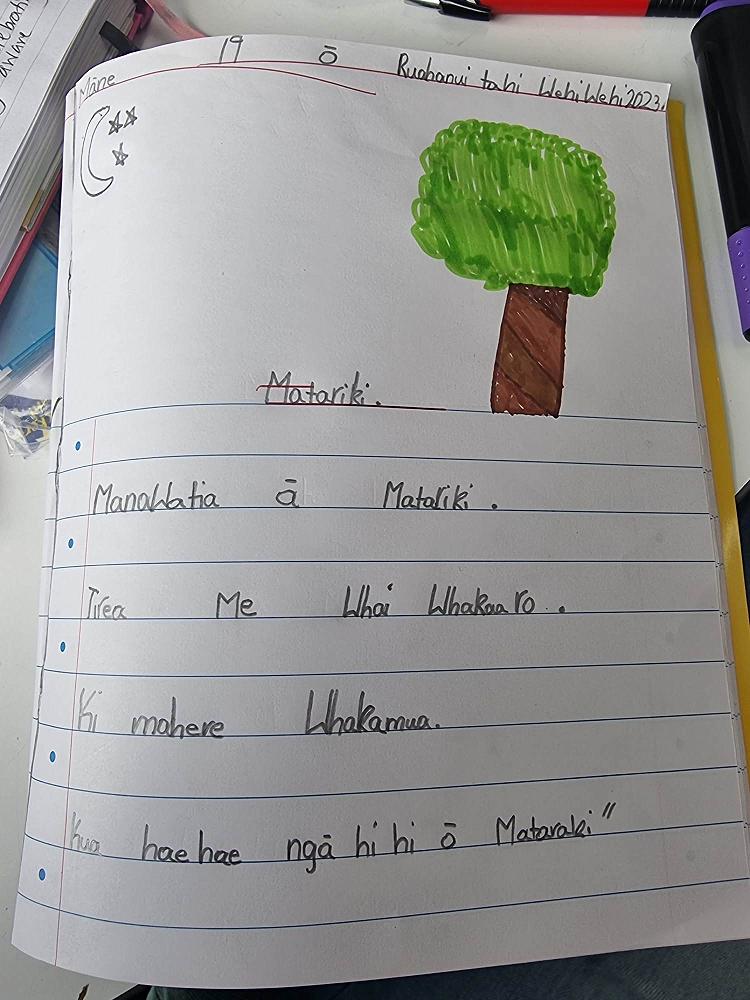 Māne 19 ō Ruahanui tahi WehiWehi 2023.
Matariki.
Manawatia ā Matariki.
Tirea Me Whai Whakaaro.
Ki mahere Whakamua.
Kua haehae ngā hi hi ō Mataraki"
aware